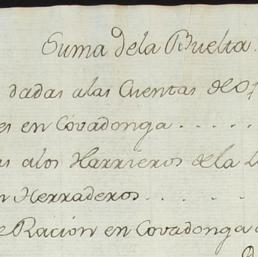 Suma dela Buelta.
dadas alas Cuentas de
es en Covadonga . . . .
as alos Harrieros de la
n Herraderos . . . . .
e Racion en Covadonga